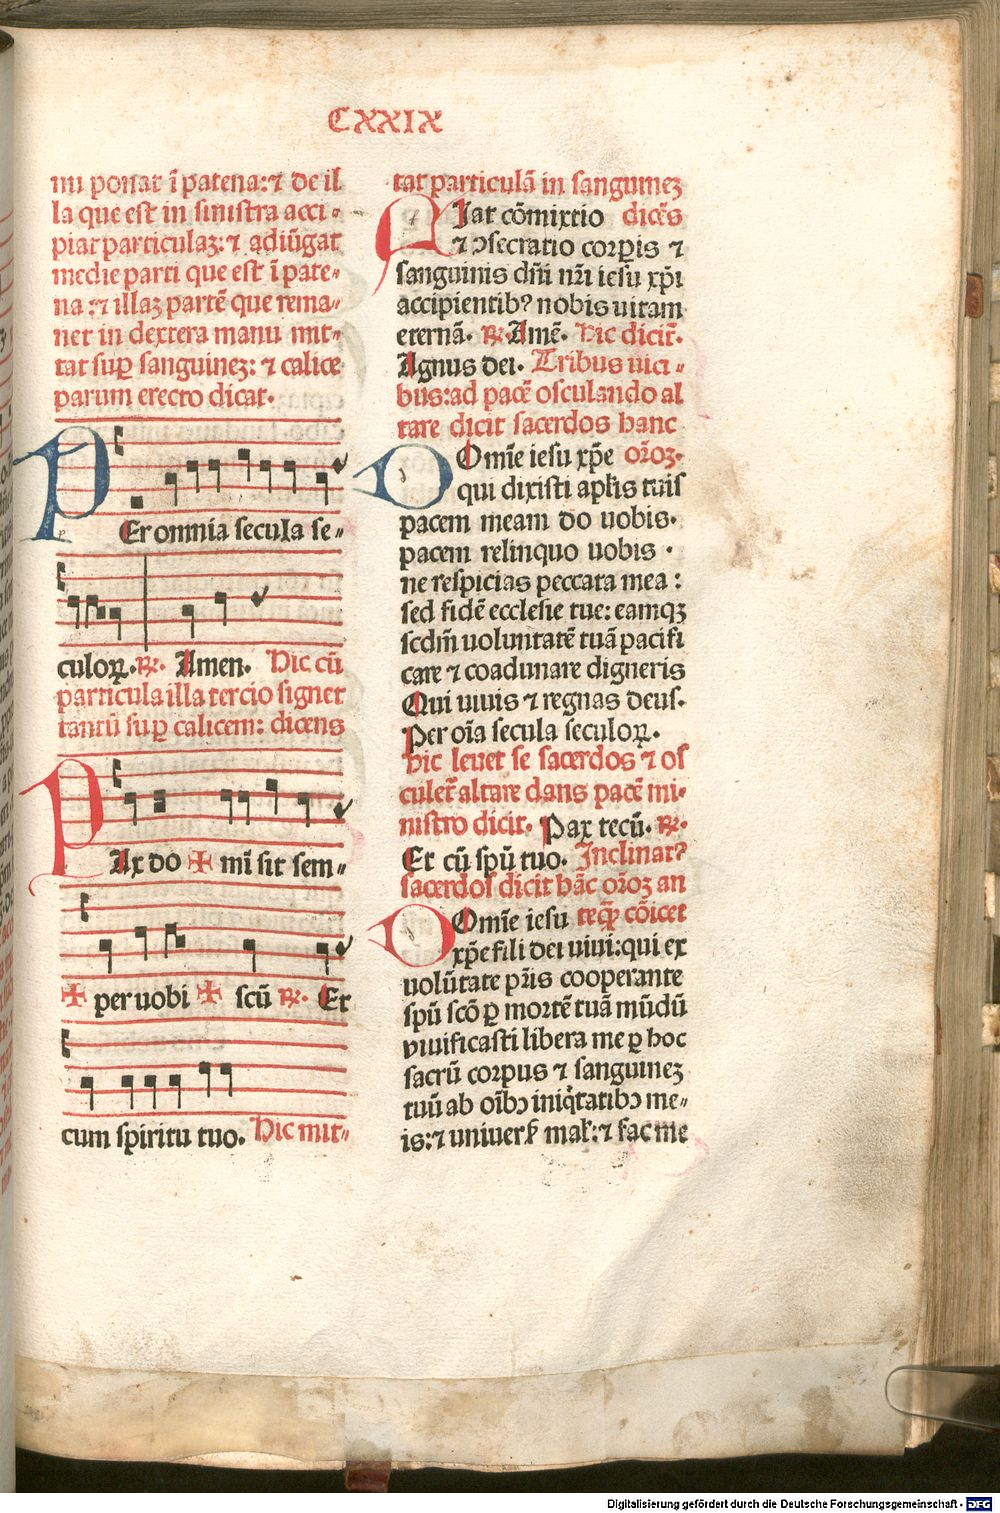 CXXIX
mi ponat ī patena: ⁊ de il
la que est in sinistra acci⸗
piat particulaꝫ: ⁊ adiūgat
medie parti que est ī pate⸗
na: ⁊ illaꝫ partē que rema⸗
net in dextera manu mit⸗
tat suꝑ sanguineꝫ: ⁊ calice
parum erecto dicat.
PEr omnia secula se⸗
culoꝝ. ℟. Amen. Hic cū
particula illa tercio signet
tantū suꝑ calicem: dicens
PAx do ✠ mī sit sem⸗
✠ per uobi ✠ scū ℟. Et
cum spiritu tuo. Hic mit⸗
tat particulā in sanguineꝫ
FIat cōmixtio dicēs
⁊ ↄsecratio corꝑis ⁊
sanguinis dn̄i nr̄i iesu xp̄i
accipientibꝰ nobis uitam
eternā. ℟. Amē. Hic dicit̄.
Agnus dei. Tribus uici⸗
bus: ad pacē osculando al
tare dicit sacerdos hanc
DOmīe iesu xp̄e or̄oꝫ.
qui dixisti apl̄is tuis
pacem meam do uobis.
pacem relinquo uobis .
ne respicias peccata mea :
sed fidē ecclesie tue: eamqꝫ
scdm̄ uoluntatē tuā pacifi
care ⁊ coadunare digneris
Qui uiuis ⁊ regnas deus.
Per oīa secula seculoꝝ.
Hic leuet se sacerdos ⁊ os
culet̄ altare dans pacē mi⸗
nistro dicit. Pax tecū. ℟.
Et cū spū tuo. Inclinatꝰ
sacerdos dicit hāc or̄oꝫ an
DOmīe iesu teqꝫ cōicet
xp̄e fili dei uiui: qui ex
uolūtate pr̄is cooperante
spū scō ꝑ mortē tuā mūdū
viuificasti libera me ꝑ hoc
sacrū corpus ⁊ sanguineꝫ
tuū ab oībꝫ iniq̇tatibꝫ me⸗
is: ⁊ uniuers̄ mal̄: ⁊ fac me
Digitalisierung gefördert durch die Deutsche Forschungsgemeinschaft - DFG